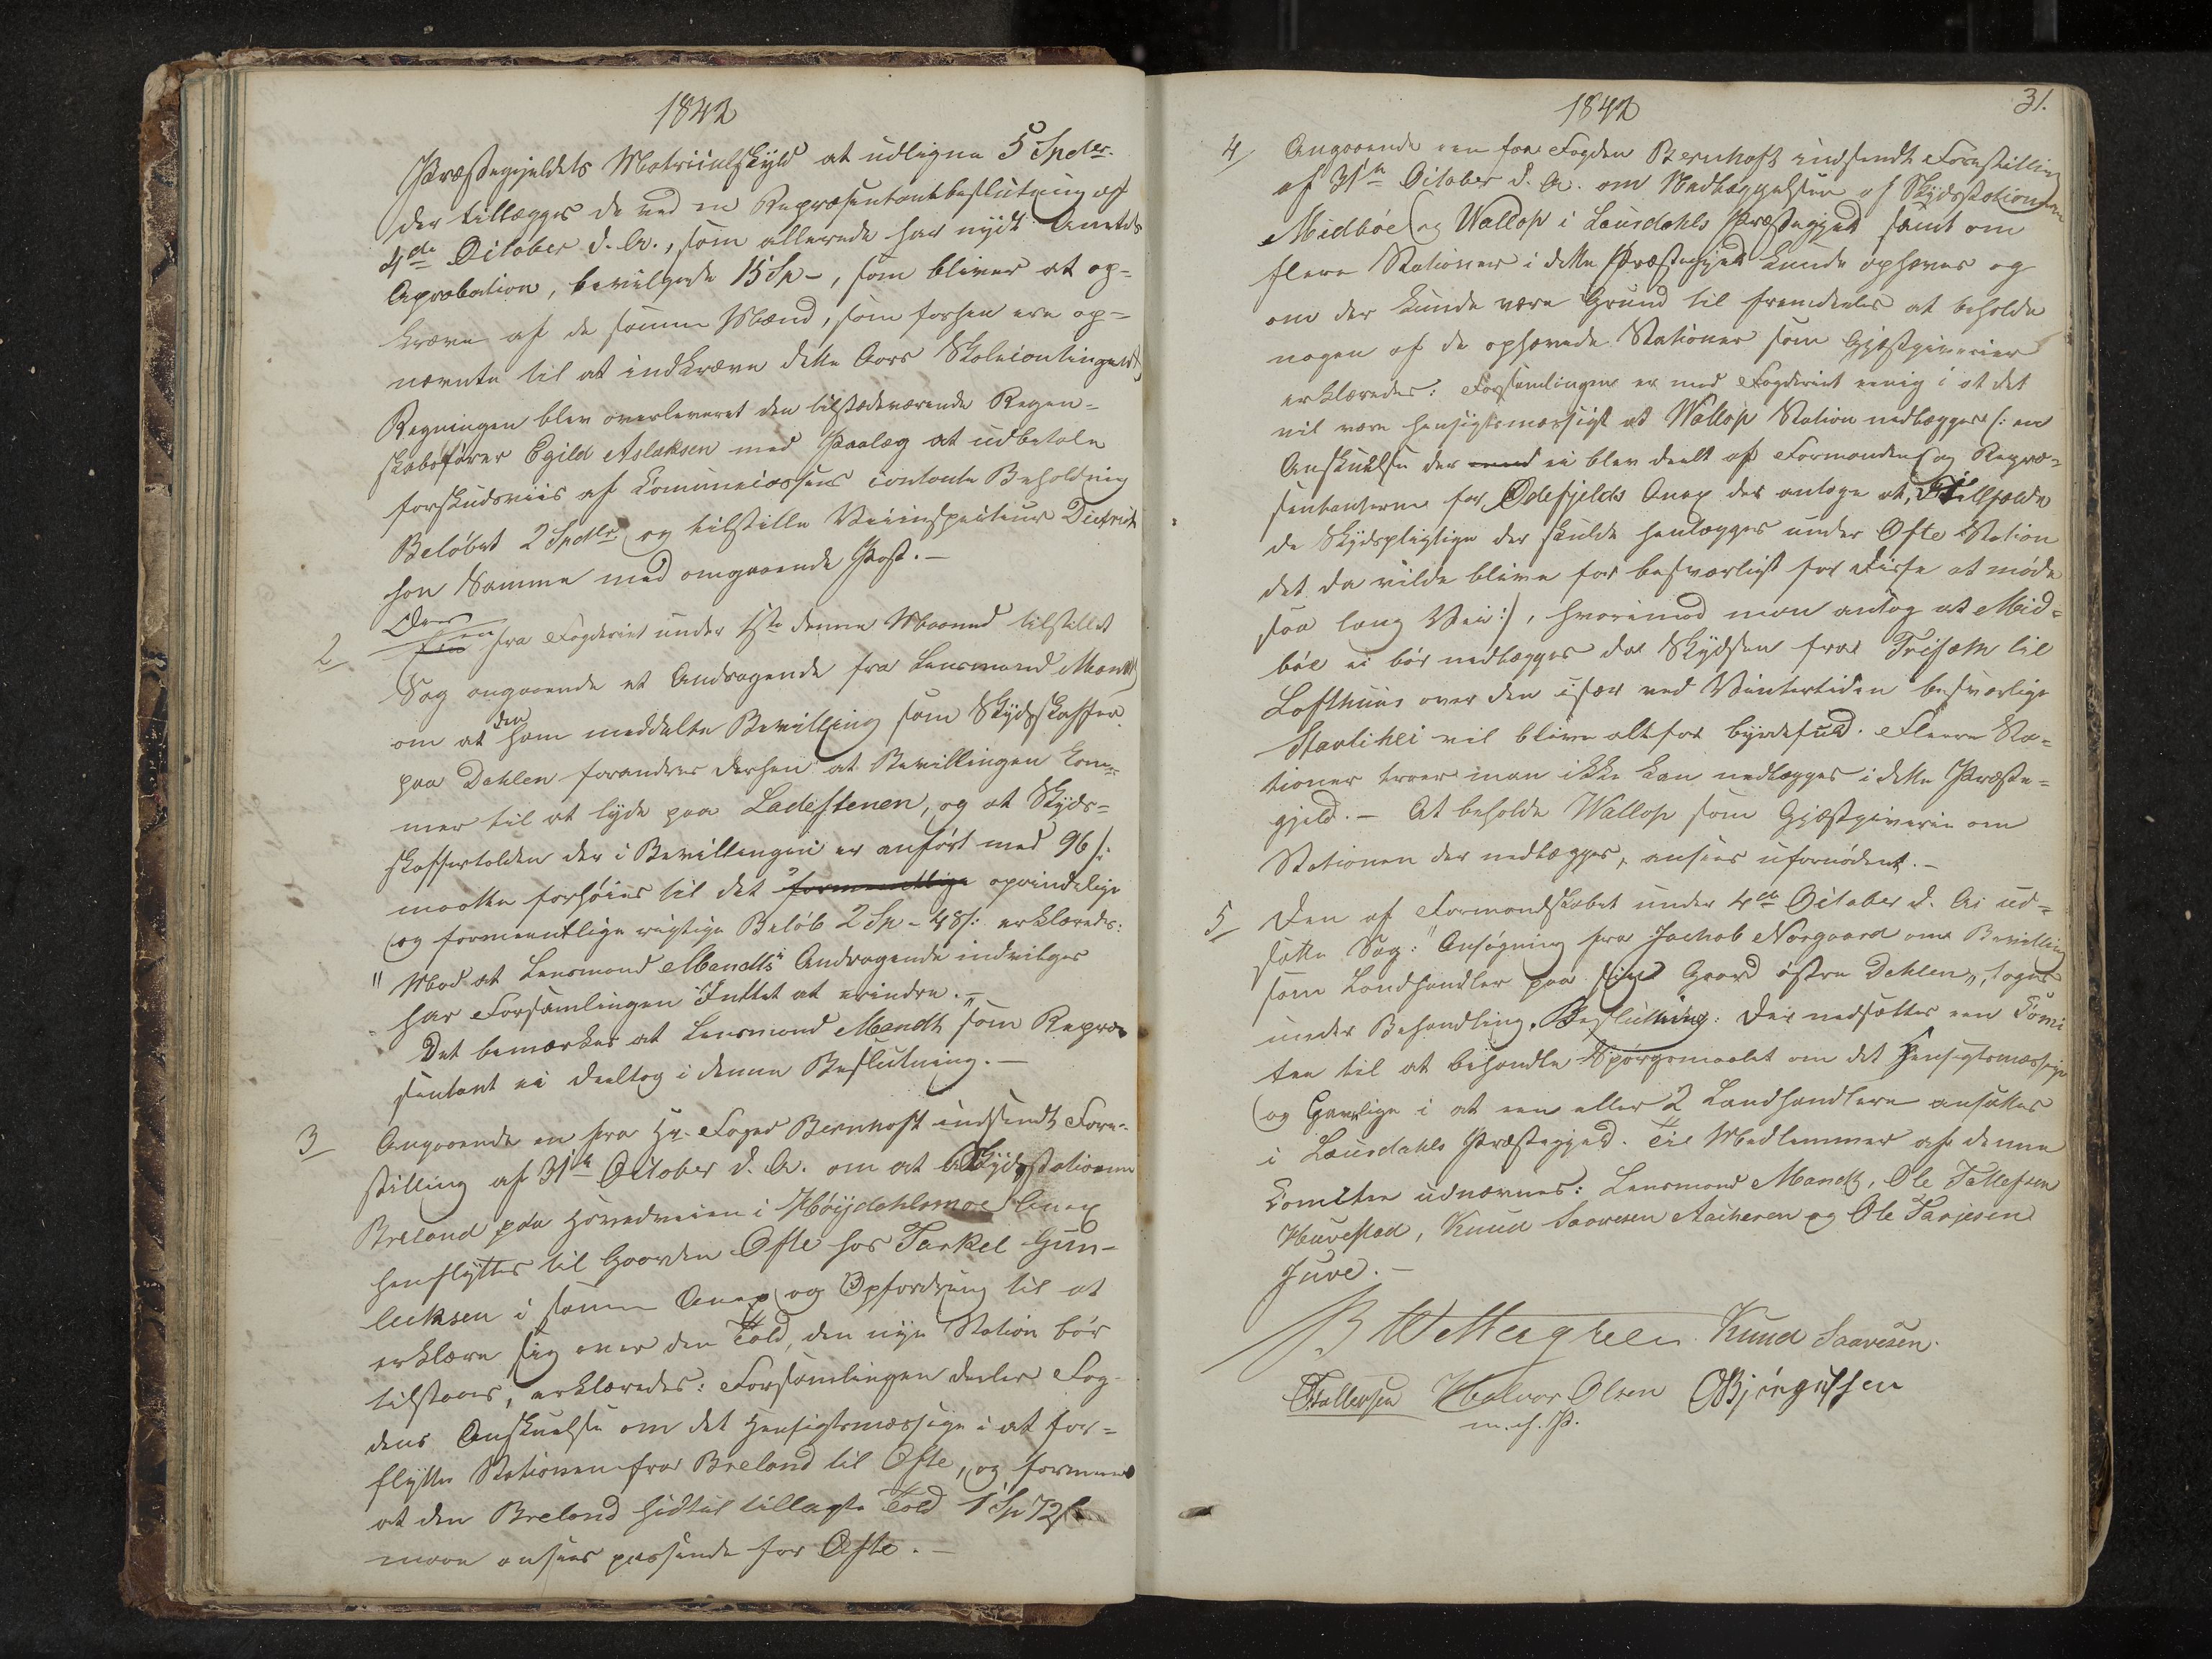 1842
Præstegjeldets Matriculskyld at udligne 5 Spdlr.
der tillægges de ved en Repræsentantbeslutning af
4de October d. A., som allerede har nydt Amtets
Aprobation, bevilgede 15 Sp -, som bliver at op-
kræve af de samme Mænd, som forhen ere op-
nævnte til at indkræve dette Aars Skolecontingent,
Regningen blev overleveret den tilstædeværende Regn-
skabsfører Egild Aslaksen med Paalæg at udbetale
forskudsviis af Communecassens contante Beholdning
Beløbet 2 Spdlr. og tilstille Veiinspecteur Dietrich-
son Samme med omgaaende Post. -
2
Over
en fra Fogderiet under 1ste denne Maaned tilstillet
Sag angaaende et Andragende fra Lensmand Mandt
om at den ham meddelte Bevilling som Skydsskaffer
paa Dahlen forandres derhen at Bevillingen kom-
mer til at lyde paa Ladestenen, og at Skyds-
skaffertolden der i Bevillingen er anført med 96 s:
maatte forhøies til det formentlige oprindelige
og formeentlige rigtige Beløb 2 Sp - 48 s: erklæredes:
" Mod at Lensmand Mandts Andragende indvilges
har Forsamlingen Inttet at erindre. -
Det bemærkes at Lensmand Mandt som Repræ
sentant ei deeltog i denne Beslutning. -
3
Angaaende en fra Hr. Foged Bernhoft indsendt Fore-
stilling af 31te October d. A. om at Skydsstationen
Breland paa Hovedveien i Høijdahlsmoe Anex
henflyttes til Gaarden Ofte hos Tarkel Gun-
leiksen i samme Anex og Opfordring til at
erklære sig over den Told, den nye Station bør
tilstaaes, erklæredes: Forsamlingen deeler Fog-
dens Anskuelse om det Hensigtsmæssige i at for-
flytte Stationen fra Breland til Ofte, og formener
at den Breland hidtil tillagte Told 1 Sp 72 s
maae ansees passende for Ofte. -
1842
31.
4
Angaaende een fra Fogden Bernhoft indsendt Forestilling
af 31te October d. A. om Nedlæggelsen af Skydsstationerne
Midbøe og Wallop i Laurdahls Præstegjeld samt om
flere Stationer i dette Præstegjeld kunde ophæves og
om der kunde være Grund til fremdeeles at beholde
nogen af de ophævede Stationer som Gjæstgiverier
erklæredes: Forsamlingen er med Fogderiet eenig i at det
vil være hensigtsmæssigt at Wallop Station nedlægges (: en
Anskuelse der ei blev deelt af Formanden og Repræ-
sentanterne for Ødefjelds Anex der antoge at, i Tilfælde
de Skydspligtige der skulde henlægges under Ofte Station
det da vilde blive for besværligt for Disse at møde
saa lang Vei :), hvorimod man antog at Mid-
bøe ei bør nedlægges da Skydsen fra Trisæth til
Lofthuus over den især ved Vintertiden besværlige
Skarlihei vil blive altfor byrdefuld. Fleere Sta-
tioner troer man ikke kan nedlægges i dette Præste-
gjeld. - At beholde Wallop som Gjæstgiverie om
Stationen der nedlægges, ansees ufornødent. -
5
Den af Formandskabet under 4de October d. A. ud-
satte Sag: "Ansøgning fra Jachob Norgaard om Bevilling
som Landhandler paa sin Gaard østre Dahlen", toges
under Behandling. Beslutning: Der nedsættes een Comi
tee til at behandle Spørgsmaalet om det Hensigtsmæssige
og Gavnlige i at een eller 2 Landhandlere ansættes
i Laurdahls Præstegjeld. Til Medlemmer af denne
Comitee udnævnes: Lensmand Mandt, Ole Tallefsen
Huvestad, Knud Saavesen Aacheren og Ole Tarjesen
Juve. -
B Wettergreen Knud Saavesen.
OTallefsen Halvor Olsen OBjørgufsen
m. f. P.